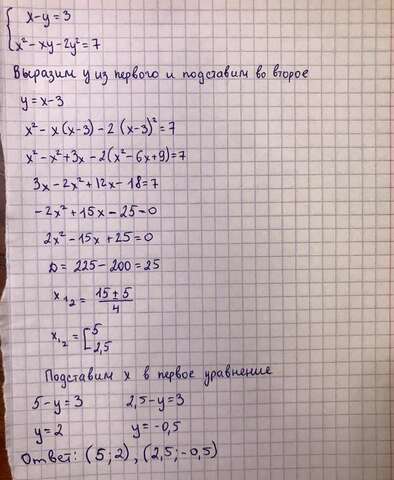 x-y=3
x²-xy-2y²=7
Выразим y из первого и подставим во второе
y=x-3
x²-x(x-3)-2(x-3)²=7
x²-x²+3x-2(x²-6x+9)=7
3x-2x²+12x-18=7
-2x²+15x-25=0
2x²-15x+25=0
D=225-200=25
x₁₂=(15±5)/4
x₁,₂=[5
2,5
Подставим x в первое уравнение
5-y=3 2,5-y=3
y=2 y=-0,5
Ответ: (5;2), (2,5;-0,5)